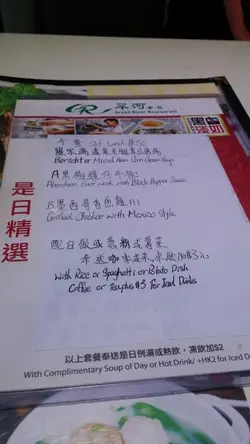 GR 翠河餐廳
Green River Restaurant
黑白淡奶
是日精選
午餐 Set Lunch $50
羅宋湯或
Borscht or Minced Ham Corn Cream Soup
A 黑椒
Aberdeen Beef with Black Pepper Sauce
B 墨西哥
Grilled Chicken with Mexico Style
配白飯或意粉或薯菜
奉送咖啡或茶 凍飲加$3
With Rice or Spaghetti or Potato Dish
Coffee or Tea plus #3 for Iced Drinks
以上套餐奉送是日例湯或熱飲，凍飲加$2
With Complimentary Soup of Day or Hot Drink/ +HK2 for Iced D